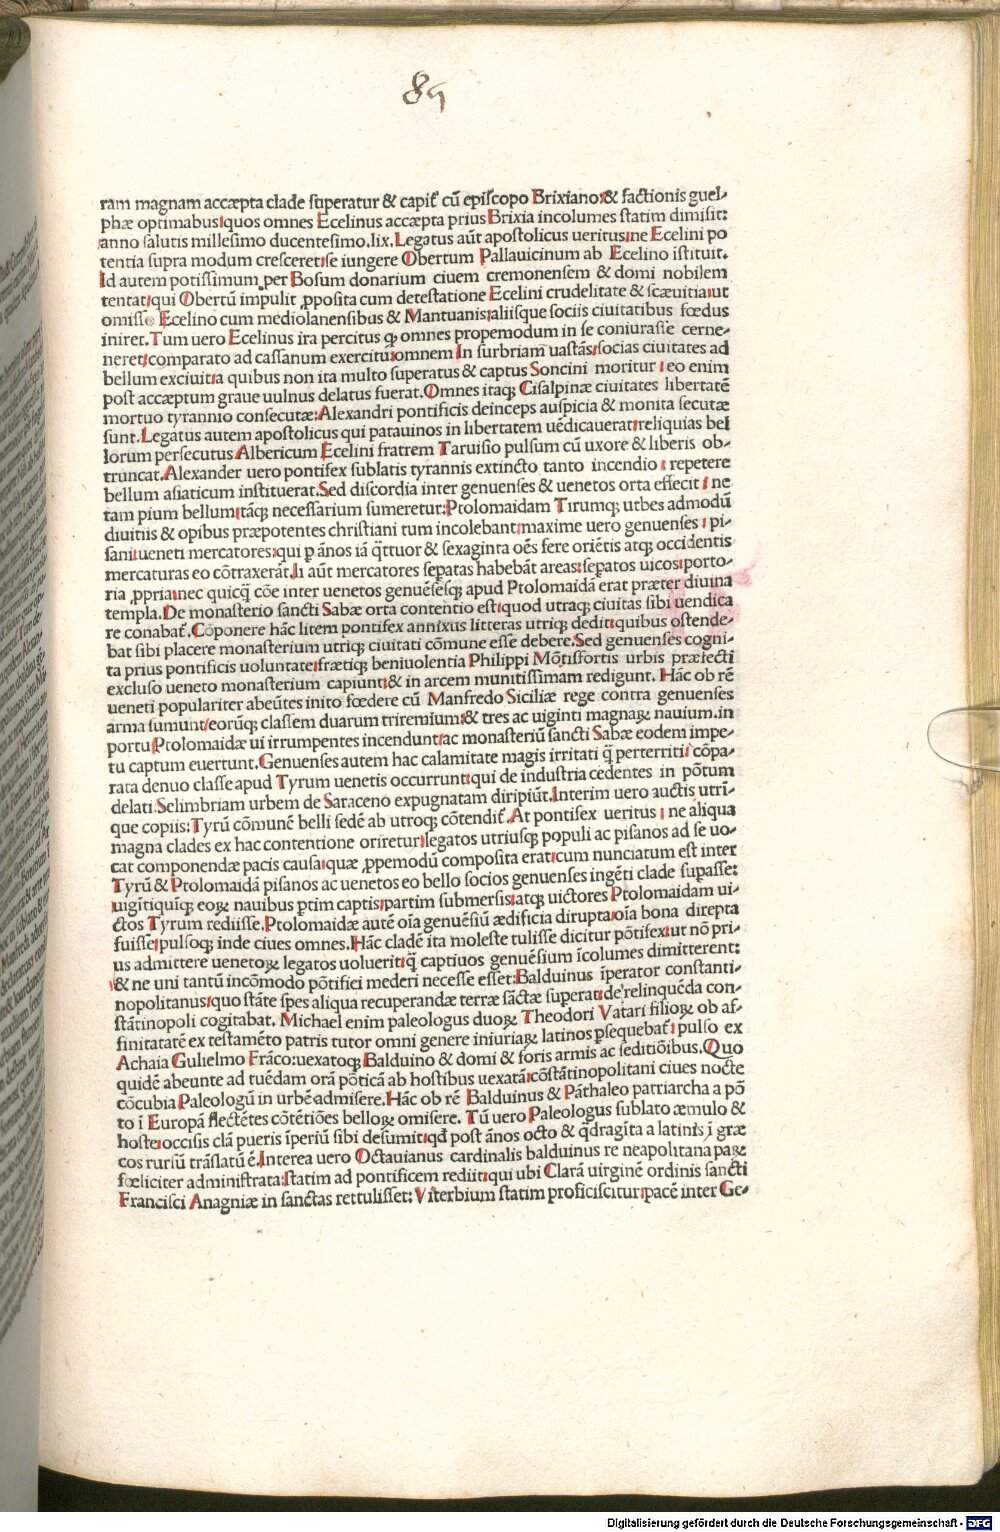 89
ram magnam accæpta clade superatur & capit̃ cũ episcopo Brixiano:& factionis guel-
phæ optimabus:quos omnes Ecelinus accæpta prius Brixia incolumes statim dimisit:
anno salutis millesimo ducentesimo.lix.Legatus aũt apostolicus ueritus:ne Ecelini po
tentia supra modum cresceret:se iungere Obertum Pallauicinum ab Ecelino istituit.
Id autem potissimum per Bosum donarium ciuem cremonensem & domi nobilem
tentat:qui Obertũ impulit ꝓposita cum detestatione Ecelini crudelitate & scæuitia:ut
omisso Ecelino cum mediolanensibus & Mantuanis:aliisque sociis ciuitatibus fœdus
iniret.Tum uero Ecelinus ira percitus ꝙ omnes propemodum in se coniurasse cerne-
neret:comparato ad cassanum exercitu:omnem In surbriam uastãs:socias ciuitates ad
bellum exciuit:a quibus non ita multo superatus & captus Soncini moritur : eo enim
post accæptum graue uulnus delatus fuerat.Omnes itaqȝ Cisalpinæ ciuitates libertatẽ
mortuo tyrannio consecutæ:Alexandri pontificis deinceps auspicia & monita secutæ
sunt.Legatus autem apostolicus qui patauinos in libertatem uẽdicauerat:reliquias bel
lorum persecutus Albericum Ecelini fratrem Taruisio pulsum cũ uxore & liberis ob-
truncat.Alexander uero pontifex sublatis tyrannis extincto tanto incendio : repetere
bellum asiaticum instituerat.Sed discordia inter genuenses & uenetos orta effecit : ne
tam pium bellum:tãqȝ necessarium sumeretur:Ptolomaidam Tirumqȝ utbes admodũ
diuitiis & opibus præpotentes christiani tum incolebant:maxime uero genuenses : pi-
sani:ueneti mercatores:qui ꝑ ãnos iã q̃ttuor & sexaginta oẽs fere oriẽtis atqȝ occidentis
mercaturas eo cõtraxerãt.Ii aũt mercatores seꝑatas habebãt areas:seꝑatos uicos:porto-
ria ꝓpria:nec quicq̃ cõe inter uenetos genuẽsesqȝ apud Ptolomaidã erat præter diuina
templa.De monasterio sancti Sabæ orta contentio est:quod utraqȝ ciuitas sibi uendica
re conabat̃.Cõponere hãc litem pontifex annixus litteras utriqȝ dedit:quibus ostende-
bat sibi placere monasterium utriqȝ ciuitati cõmune esse debere.Sed genuenses cogni-
ta prius pontificis uoluntate:frætiqȝ beniuolentia Philippi Mõtisfortis urbis præfecti
excluso ueneto monasterium capiunt:& in arcem munitissimam redigunt. Hãc ob rẽ
ueneti populariter abeũtes inito fœdere cũ Manfredo Siciliæ rege contra genuenses
arma sumunt:eorũqȝ classem duarum triremium:& tres ac uiginti magnaꝝ nauium.in
portu Ptolomaidæ ui irrumpentes incendunt:ac monasteriũ sancti Sabæ eodem impe-
tu captum euertunt.Genuenses autem hac calamitate magis irritati q̃ perterriti: cõpa-
rata denuo classe apud Tyrum uenetis occurrunt:qui de industria cedentes in põtum
delati.Selimbriam urbem de Saraceno expugnatam diripiũt.Interim uero auctis utri-
que copiis:Tyrũ cõmunẽ belli sedẽ ab utroqȝ cõtendit̃.At pontifex ueritus : ne aliqua
magna clades ex hac contentione oriretur:legatos utriusqȝ populi ac pisanos ad se uo-
cat componendæ pacis causa:quæ ꝓpemodũ composita erat:cum nunciatum est inter
Tyrũ & Ptolomaidã pisanos ac uenetos eo bello socios genuenses ingẽti clade suꝑasse:
uigĩtiquĩqȝ eoꝝ nauibus ꝑtim captis:partim submersis:atqȝ uictores Ptolomaidam ui-
ctos Tyrum rediisse.Ptolomaidæ autẽ oĩa genuẽsiũ ædificia dirupta:oĩa bona direpta
fuisse:pulsoqȝ inde ciues omnes.Hãc cladẽ ita moleste tulisse dicitur põtifex:ut nõ pri-
us admittere uenetoꝝ legatos uoluerit:q̃ captiuos genuẽsium ĩcolumes dimitterent:
& ne uni tantũ incõmodo põtifici mederi necesse esset:Balduinus ĩperator constanti-
nopolitanus:quo stãte spes aliqua recuperandæ terræ sãctæ superat:de relinquẽda con-
stãtinopoli cogitabat. Michael enim paleologus duoꝝ Theodori Vatari filioꝝ ob af-
finitatatẽ ex testamẽto patris tutor omni genere iniuriaꝝ latinos ꝑsequebat̃: pulso ex
Achaia Gulielmo Frãco:uexatoqȝ Balduino & domi & foris armis ac seditiõibus.Quo
quidẽ abeunte ad tuẽdam orã põticã ab hostibus uexatã:cõstãtinopolitani ciues nocte
cõcubia Paleologũ in urbẽ admisere.Hãc ob rẽ Balduinus & Pãthaleo patriarcha a põ
to ĩ Europã flectẽtes cõtẽtiões belloꝝ omisere. Tũ uero Paleologus sublato æmulo &
hoste:occisis clã pueris ĩperiũ sibi desumit:qđ post ãnos octo & q̃dragĩta a latinis ĩ græ
cos rursũ trãslatũ ẽ.Interea uero Octauianus cardinalis balduinus re neapolitana paꝝ
fœliciter administrata:statim ad pontificem rediit:qui ubi Clarã uirginẽ ordinis sancti
Francisci Anagniæ in sanctas rettulisset: Viterbium statim proficiscitur:pacẽ inter Ge-
Digitalisierung gefördert durch die Deutsche Forschungsgemeinschaft - DFG